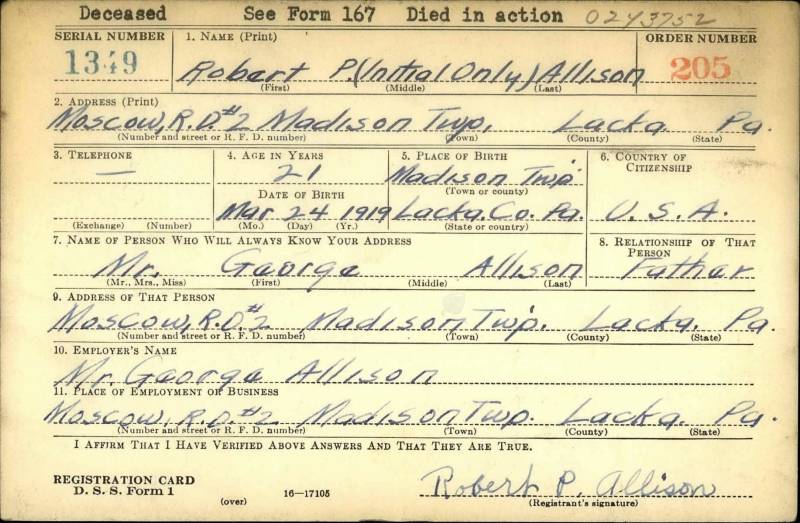 Deceased See Form 167 Died in action 0243752
SERIAL NUMBER 1. NAME (Print) ORDER NUMBER
1349 Robert P. (Initial Only) Allison 205
(First) (Middle) (Last)
2. ADDRESS (Print)
Moscow, R.D.#2 Madison Twp. Lacka. Pa.
(Number and street or R. F. D. number) (Town) (County) (State)
3. TELEPHONE 4. AGE IN YEARS 5. PLACE OF BIRTH 6. COUNTRY OF CITIZENSHIP
— 21 Madison Twp.
DATE OF BIRTH (Town or county)
Mar. 24 1919 Lacka. Co. Pa. U.S.A.
(Exchange) (Number) (Mo.) (Day) (Yr.) (State or country)
7. NAME OF PERSON WHO WILL ALWAYS KNOW YOUR ADDRESS 8. RELATIONSHIP OF THAT PERSON
Mr. George Allison Father
(Mr., Mrs., Miss) (First) (Middle) (Last)
9. ADDRESS OF THAT PERSON
Moscow, R.D.#2 Madison, Twp. Lacka. Pa.
(Number and street or R. F. D. number) (Town) (County) (State)
10. EMPLOYER'S NAME
Mr. George Allison
11. PLACE OF EMPLOYMENT OR BUSINESS
Moscow, R.D.#2 Madison Twp. Lacka. Pa.
(Number and street or R. F. D. number) (Town) (County) (State)
I AFFIRM THAT I HAVE VERIFIED ABOVE ANSWERS AND THAT THEY ARE TRUE.
REGISTRATION CARD
D. S. S. Form 1 (over) 16—17105 Robert P. Allison
(Registrant's signature)